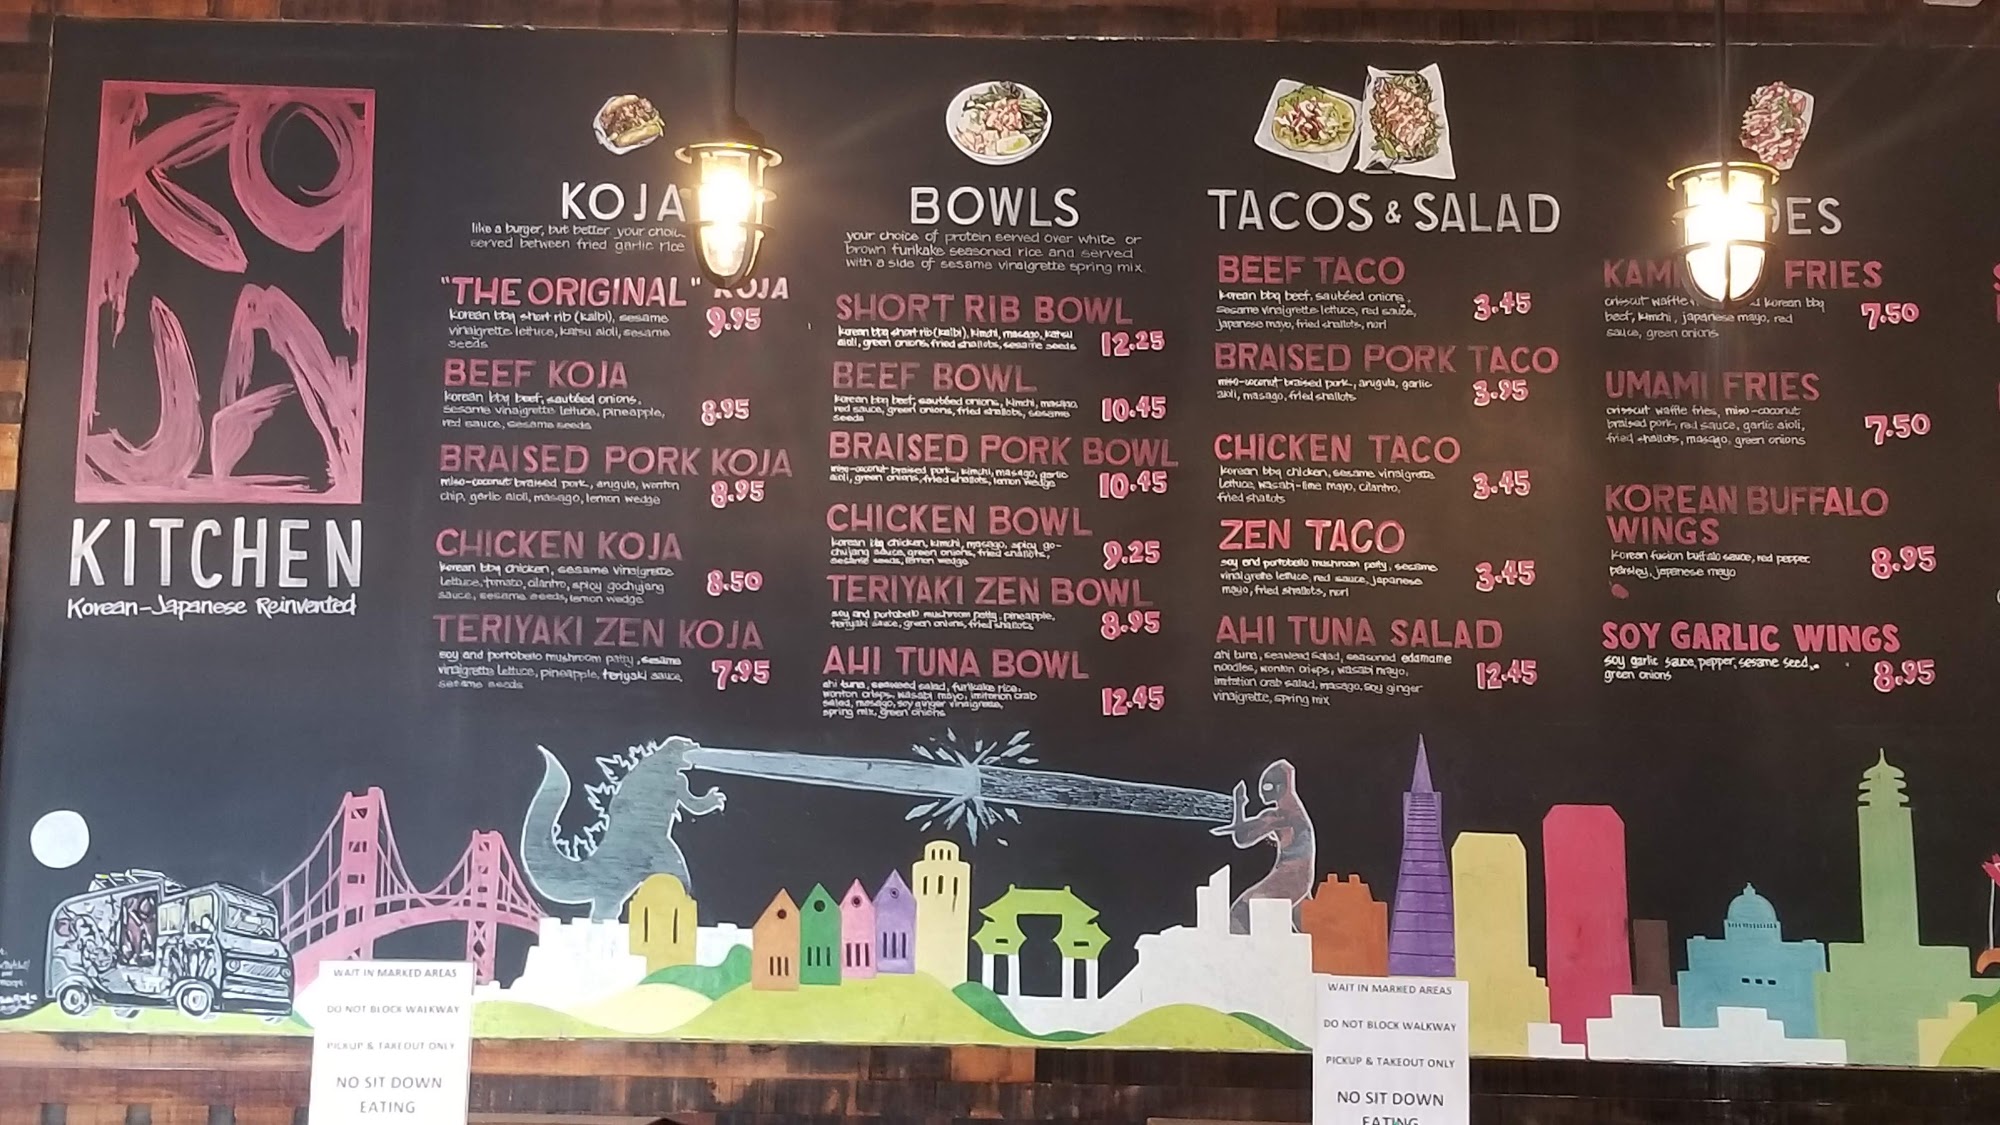 KO
JA
KITCHEN
Korean-Japanese Reinvented
KOJA
like a burger, but better your
served between fried garlic rice
"THE ORIGINAL" KOJA
korean bbq short rib (kalbi), sesame
vinaigrette lettuce, katsu aioli, sesame
seeds
9.95
BEEF KOJA
korean bbq beef, sautéed onions,
sesame vinaigrette lettuce, pineapple,
red sauce, sesame seeds
8.95
BRAISED PORK KOJA
miso-coconut braised pork, arugula, wonton
chip, garlic aioli, masago, lemon wedge
8.95
CHICKEN KOJA
korean bbq chicken, sesame vinaigrette
lettuce, tomato, cilantro, spicy gochujang
sauce, sesame seeds, lemon wedge
8.50
TERIYAKI ZEN KOJA
soy and portobello mushroom patty, sesame
vinaigrette lettuce, pineapple, teriyaki sauce,
sesame seeds
7.95
BOWLS
your choice of protein served over white or
brown furikake seasoned rice and served
with a side of sesame vinaigrette spring mix
SHORT RIB BOWL
korean bbq short rib (kalbi), kimchi, masago, katsu
aioli, green onions, fried shallots, sesame seeds
12.25
BEEF BOWL
korean bbq beef, sautéed onions, kimchi, masago,
red sauce, green onions, fried shallots, sesame
seeds
10.45
BRAISED PORK BOWL
miso-coconut braised pork, kimchi, masago, garlic
aioli, green onions, fried shallots, lemon wedge
10.45
CHICKEN BOWL
korean bbq chicken, kimchi, masago, spicy go-
chujang sauce, green onions, fried shallots,
sesame seeds, lemon wedge
9.25
TERIYAKI ZEN BOWL
soy and portobello mushroom patty, pineapple,
teriyaki sauce, green onions, fried shallots
8.95
AHI TUNA BOWL
ahi tuna, seaweed salad, furikake rice,
wonton crisps, wasabi mayo, imitation crab
salad, masago, soy ginger vinaigrette,
spring mix, green onions
12.45
TACOS & SALAD
BEEF TACO
korean bbq beef, sautéed onions,
sesame vinaigrette lettuce, red sauce,
japanese mayo, fried shallots, nori
3.45
BRAISED PORK TACO
miso-coconut braised pork, arugula, garlic
aioli, masago, fried shallots
3.95
CHICKEN TACO
korean bbq chicken, sesame vinaigrette
lettuce, wasabi-lime mayo, cilantro,
fried shallots
3.45
ZEN TACO
soy and portobello mushroom patty, sesame
vinaigrette lettuce, red sauce, japanese
mayo, fried shallots, nori
3.45
AHI TUNA SALAD
ahi tuna, seaweed salad, seasoned edamame
noodles, wonton crisps, wasabi mayo,
imitation crab salad, masago, soy ginger
vinaigrette, spring mix
12.45
FRIES
crisscut waffle korean bbq
beef, kimchi, japanese mayo, red
sauce, green onions
7.50
UMAMI FRIES
crisscut waffle fries, miso-coconut
braised pork, red sauce, garlic aioli,
fried shallots, masago, green onions
7.50
KOREAN BUFFALO
WINGS
korean fusion buffalo sauce, red pepper,
parsley, japanese mayo
8.95
SOY GARLIC WINGS
soy garlic sauce, pepper, sesame seed,
green onions
8.95
WAIT IN MARKED AREAS
DO NOT BLOCK WALKWAY
PICKUP & TAKEOUT ONLY
NO SIT DOWN
EATING
WAIT IN MARKED AREAS
DO NOT BLOCK WALKWAY
PICKUP & TAKEOUT ONLY
NO SIT DOWN
EATING